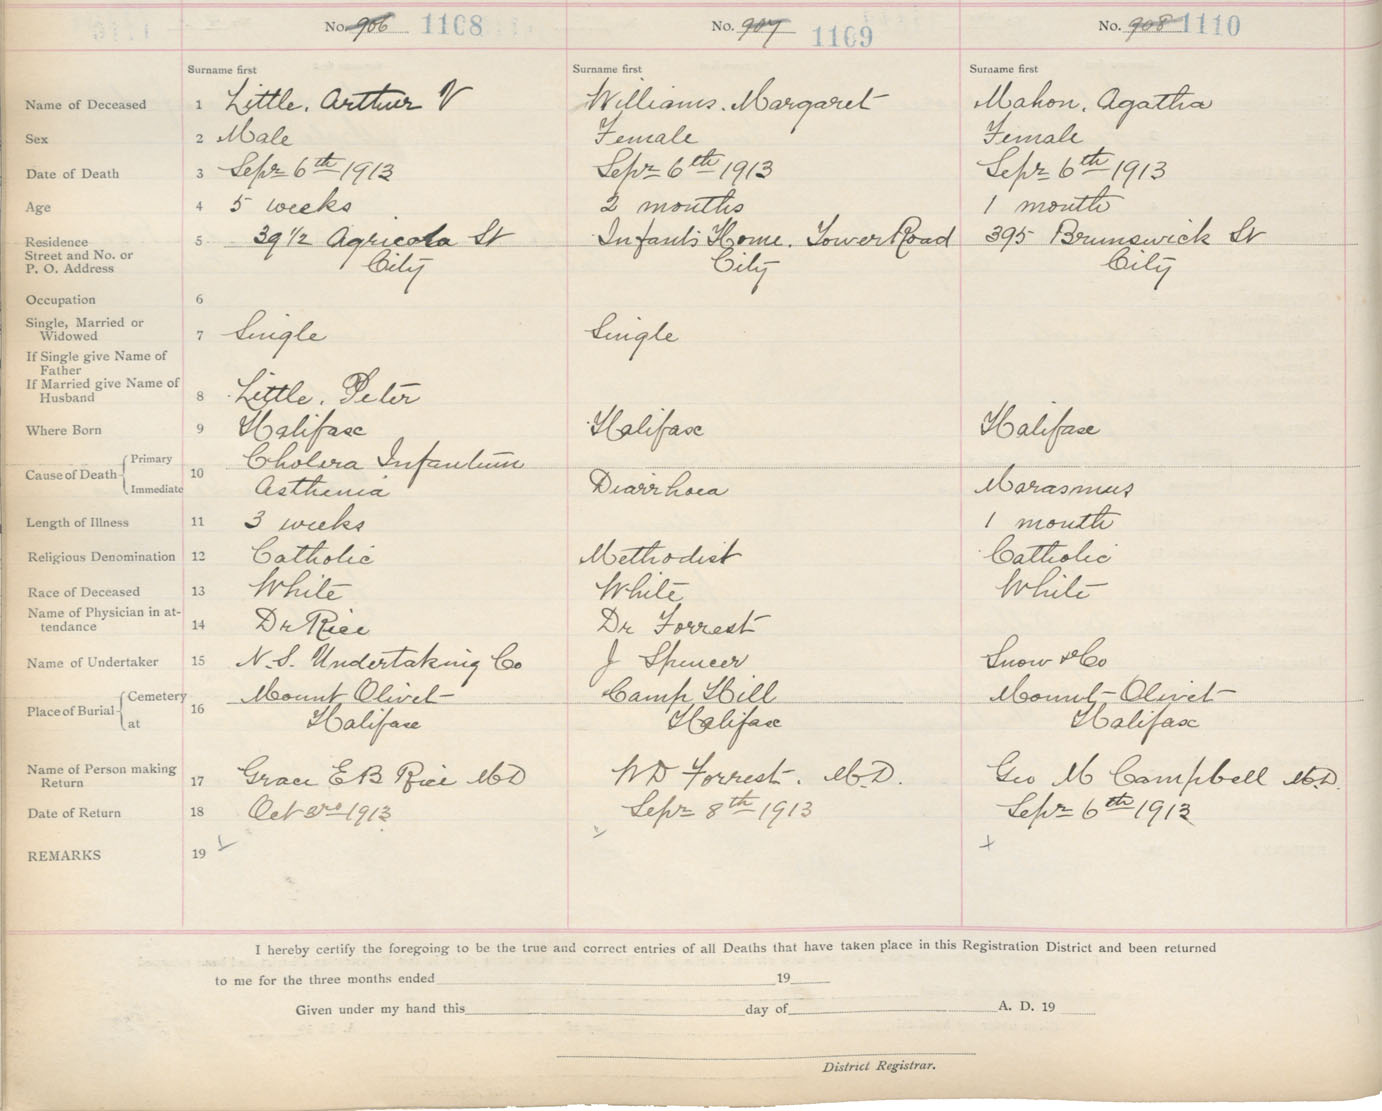 No. 906 1108 No. 907 1109 No. 908 1110
Surname first Surname first Surname first
Name of Deceased 1 Little, Arthur V Williams, Margaret Mahon, Agatha
Sex 2 Male Female Female
Date of Death 3 Sepr 6th 1913 Sepr 6th 1913 Sepr 6th 1913
Age 4 5 weeks 2 months 1 month
Residence 5 39 1/2 Agricola St Infants Home. Tower Road 395 Brunswick St
Street and No. or
P. O. Address City City City
Occupation 6
Single, Married or
Widowed 7 Single Single
If Single give Name of
Father
If Married give Name of
Husband 8 Little, Peter
Where Born 9 Halifax Halifax Halifax
Cause of Death Primary 10 Cholera Infantum
Immediate Asthenia Diarrhoea Marasmus
Length of Illness 11 3 weeks 1 month
Religious Denomination 12 Catholic Methodist Catholic
Race of Deceased 13 White White White
Name of Physician in at-
tendance 14 Dr Rice Dr Forrest
Name of Undertaker 15 N.S. Undertaking Co J Spencer Snow & Co
Place of Burial Cemetery 16 Mount Olivet Camp Hill Mount Olivet
at Halifax Halifax Halifax
Name of Person making
Return 17 Grace E B Rice MD W D Forrest. M.D. Geo M Campbell M.D.
Date of Return 18 Oct 3rd 1913 Sepr 8th 1913 Sepr 6th 1913
REMARKS 19
I hereby certify the foregoing to be the true and correct entries of all Deaths that have taken place in this Registration District and been returned
to me for the three months ended 19
Given under my hand this day of A. D. 19
District Registrar.